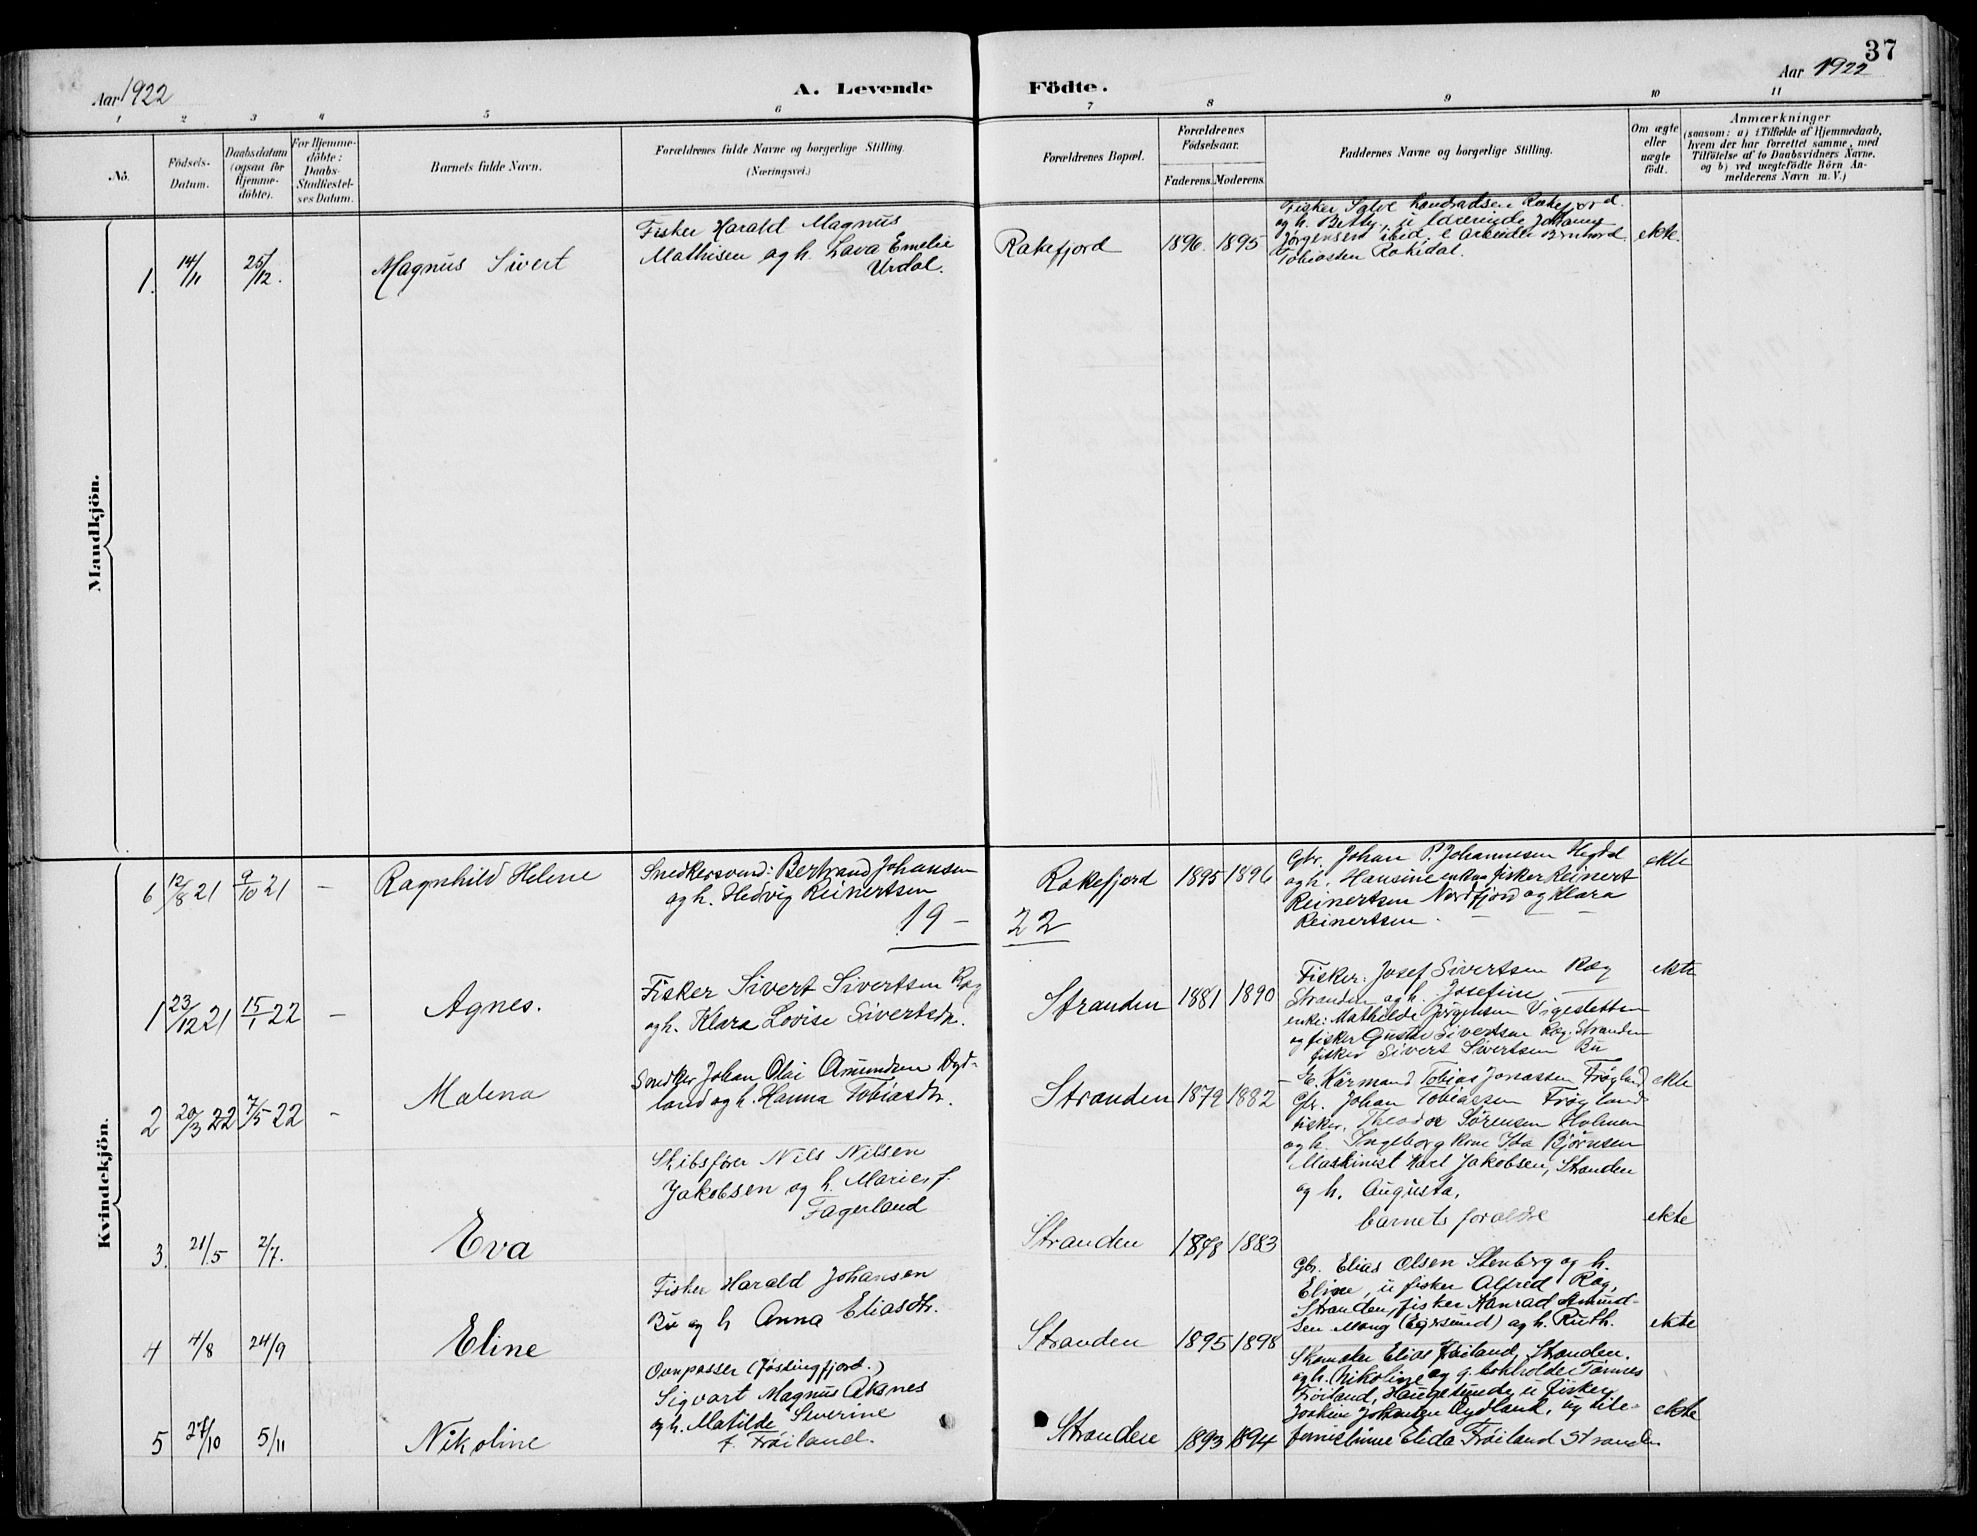 37
Aar 1922
A. Levende
Födte.
Aar 1922
1 2 3 4 5 6 7 8 9 10 11
No.
Födsels-
Datum.
Daabsdatum
(ogsaa for
Hjemme-
döbte).
For Hjemme-
döbte:
Daabs-
Stadfæstel-
ses Datum.
Barnets fulde Navn.
Forældrenes fulde Navne og borgerlige Stilling.
(Næringsvei.)
Forældrenes Bopæl.
Forældrenes
Födselsaar.
Faderens. Moderens.
Faddernes Navne og borgerlige Stilling.
Om ægte
eller
uægte
født.
Anmærkninger
(saasom: a) i Tilfælde af Hjemmedaab,
hvem der har forrettet samme, med
Tilföielse af to Daabsvidners Navne,
og b) ved uægtefödte Börn An-
melderens Navn m. V.)
Mandkjön.
1. 14/11 25/12. Magnus Sivert
Fisker Harald Magnus
Mathisen og h. Lava Emelie
Urdal.
Rakefjord 1896 1895
Fisker Salve Rakefjord
og h. Betty, Johanne
Jørgensen ibid.
Tobiassen Rakidal.
ekte
Kvindekjön.
6 12/8 21 9/10 21 - Ragnhild Helene
Snedkersvend: Bertrand Johansen
og h. Hedvig Reinertsen
Rakefjord 1895 1896
Gbr. Johan P. Johannesen Hegdal
og h. Hansine enkem. fisker Reinert
Reinertsen Nordfjord og Klara
Reinertsen.
ekte
19- 22
1 23/12 21 15/1 22 - Agnes.
Fisker Sivert Sivertsen Ræg
og h. Klara Lovise Sivertsdr.
Stranden 1881 1890
Fisker: Josef Sivertsen Ræg
Stranden og h. Josefine —
enke: Mathilde Jörgensen Vigestetten
og fisker Gustav Sivertsen Ræg. Stranden
fisker Sivert Sivertsen Bu
ekte
2 20/3 22 7/5 22 - Malena
Snedker Johan Olai Amundsen Dyd-
land og h. Hanna Tobiasdtr.
Stranden 1879 1882
E. Kårmand Tobias Jonassen Frøyland
Gbr. Johan Tobiassen Frøyland
fisker. Theodor Sörensen Holmen
og h. Ingeborg kone Ida Bjørnsen
Maskinist Karl Jakobsen, Stranden
og h. Augusta.
ekte
3. 21/5 2/7. Eva
Skibsfører Nils Nilsen
Jakobsen og h. Marie f.
Fagerland
Stranden 1878 1883
barnets foraldre
ekte
4 4/8 24/9 Eline
Fisker Harald Johansen
Bu og h Anna Eliasdtr.
Stranden 1895 1898
Gbr. Elias Olsen Stenberg og h.
Eline, u fisker Alfred Ræg,
Stranden, fisker Konrad Amund-
sen Mong (Egersund) og h. Ruth.
ekte
5 27/10 5/11 Nikoline
Ovnpasser (Jøssingfjord.)
Sigvart Magnus Aksnes
og h. Matilde Severine
f. Frøiland.
Stranden 1893 1894
Skomaker Elias Frøiland, Stranden.
og h. Nikoline og g. bokholder Tønnes
Frøiland, Haugesund, u fisker
Joakim Johansen Dydland, ug tele-
fonistinne Elida Frøiland Stranden
ekte